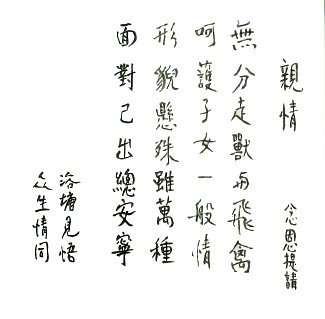 親情
公恩提請
無分走獸与飛禽
呵護子女一般情
形貌懸殊雖萬種
面對己出總安寧
洛塘見悟
众生情同